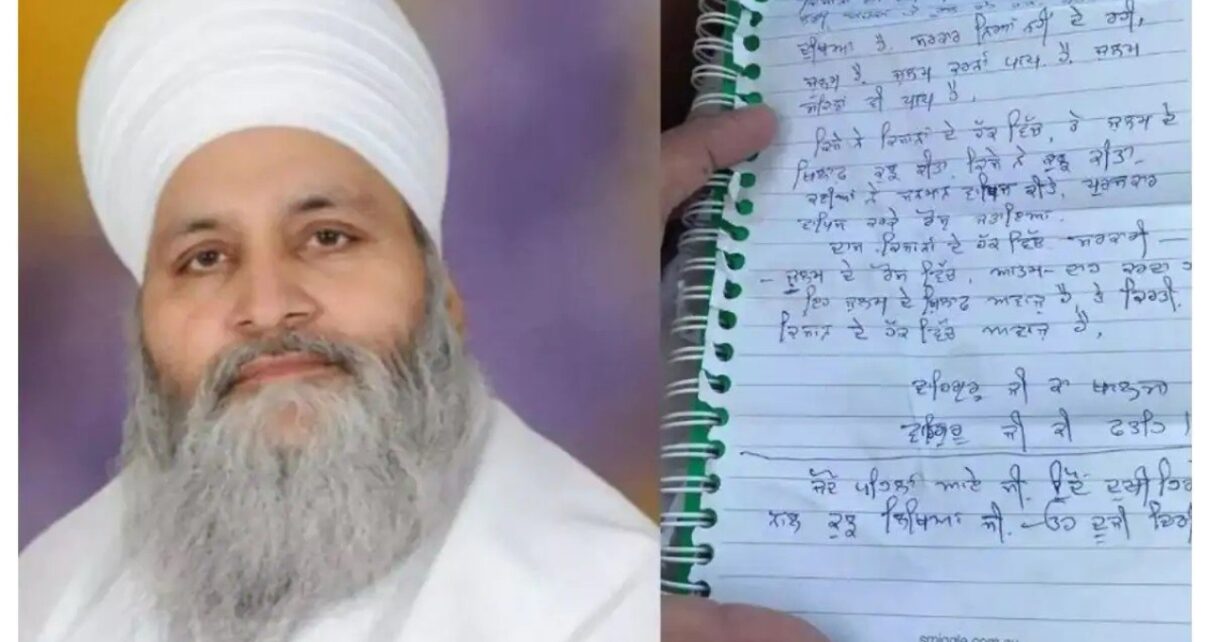 ਦੁਖਿਆ ਹੈ. ਸਰਕਾਰ ਨਿਆਂ ਨਹੀਂ ਦੇ ਰਹੀ,
ਜ਼ੁਲਮ ਹੈ. ਜ਼ੁਲਮ ਕਰਨਾ ਪਾਪ ਹੈ. ਜ਼ੁਲਮ
ਸਹਿਣਾ ਵੀ ਪਾਪ ਹੈ,
ਕਿਸੇ ਨੇ ਕਿਸਾਨਾਂ ਦੇ ਹੱਕ ਵਿੱਚ, ਤੇ ਜ਼ੁਲਮ ਦੇ
ਖਿਲਾਫ ਕੁਝ ਕੀਤਾ, ਕਿਸੇ ਨੇ ਕੁਝ ਕੀਤਾ.
ਕਈਆਂ ਨੇ ਸਨਮਾਨ ਵਾਪਿਸ ਕੀਤੇ, ਪੁਰਸਕਾਰ
ਵਾਪਿਸ ਕਰਕੇ ਰੋਸ ਜਤਾਇਆ.
ਦਾਸ ਕਿਸਾਨਾਂ ਦੇ ਹੱਕ ਵਿੱਚ ਸਰਕਾਰੀ -
- ਜ਼ੁਲਮ ਦੇ ਰੋਸ ਵਿੱਚ, ਆਤਮ-ਦਾਹ ਕਰਦਾ
ਇਹ ਜ਼ੁਲਮ ਦੇ ਖ਼ਿਲਾਫ ਅਵਾਜ਼ ਹੈ, ਤੇ ਕਿਰਤੀ,
ਕਿਸਾਨ ਦੇ ਹੱਕ ਵਿੱਚ ਅਵਾਜ਼ ਹੈ,
ਵਾਹਿਗੁਰੂ ਜੀ ਕਾ ਖਾਲਸਾ
ਵਾਹਿਗੁਰੂ ਜੀ ਕੀ ਫਤਹਿ।
ਜਦੋਂ ਪਹਿਲਾਂ ਆਏ ਸੀ. ਉਦੋਂ ਦੁਖੀ
ਨਾਲ ਕੁਝ ਲਿਖਿਆ ਸੀ. ਉਹ ਦੂਜੀ